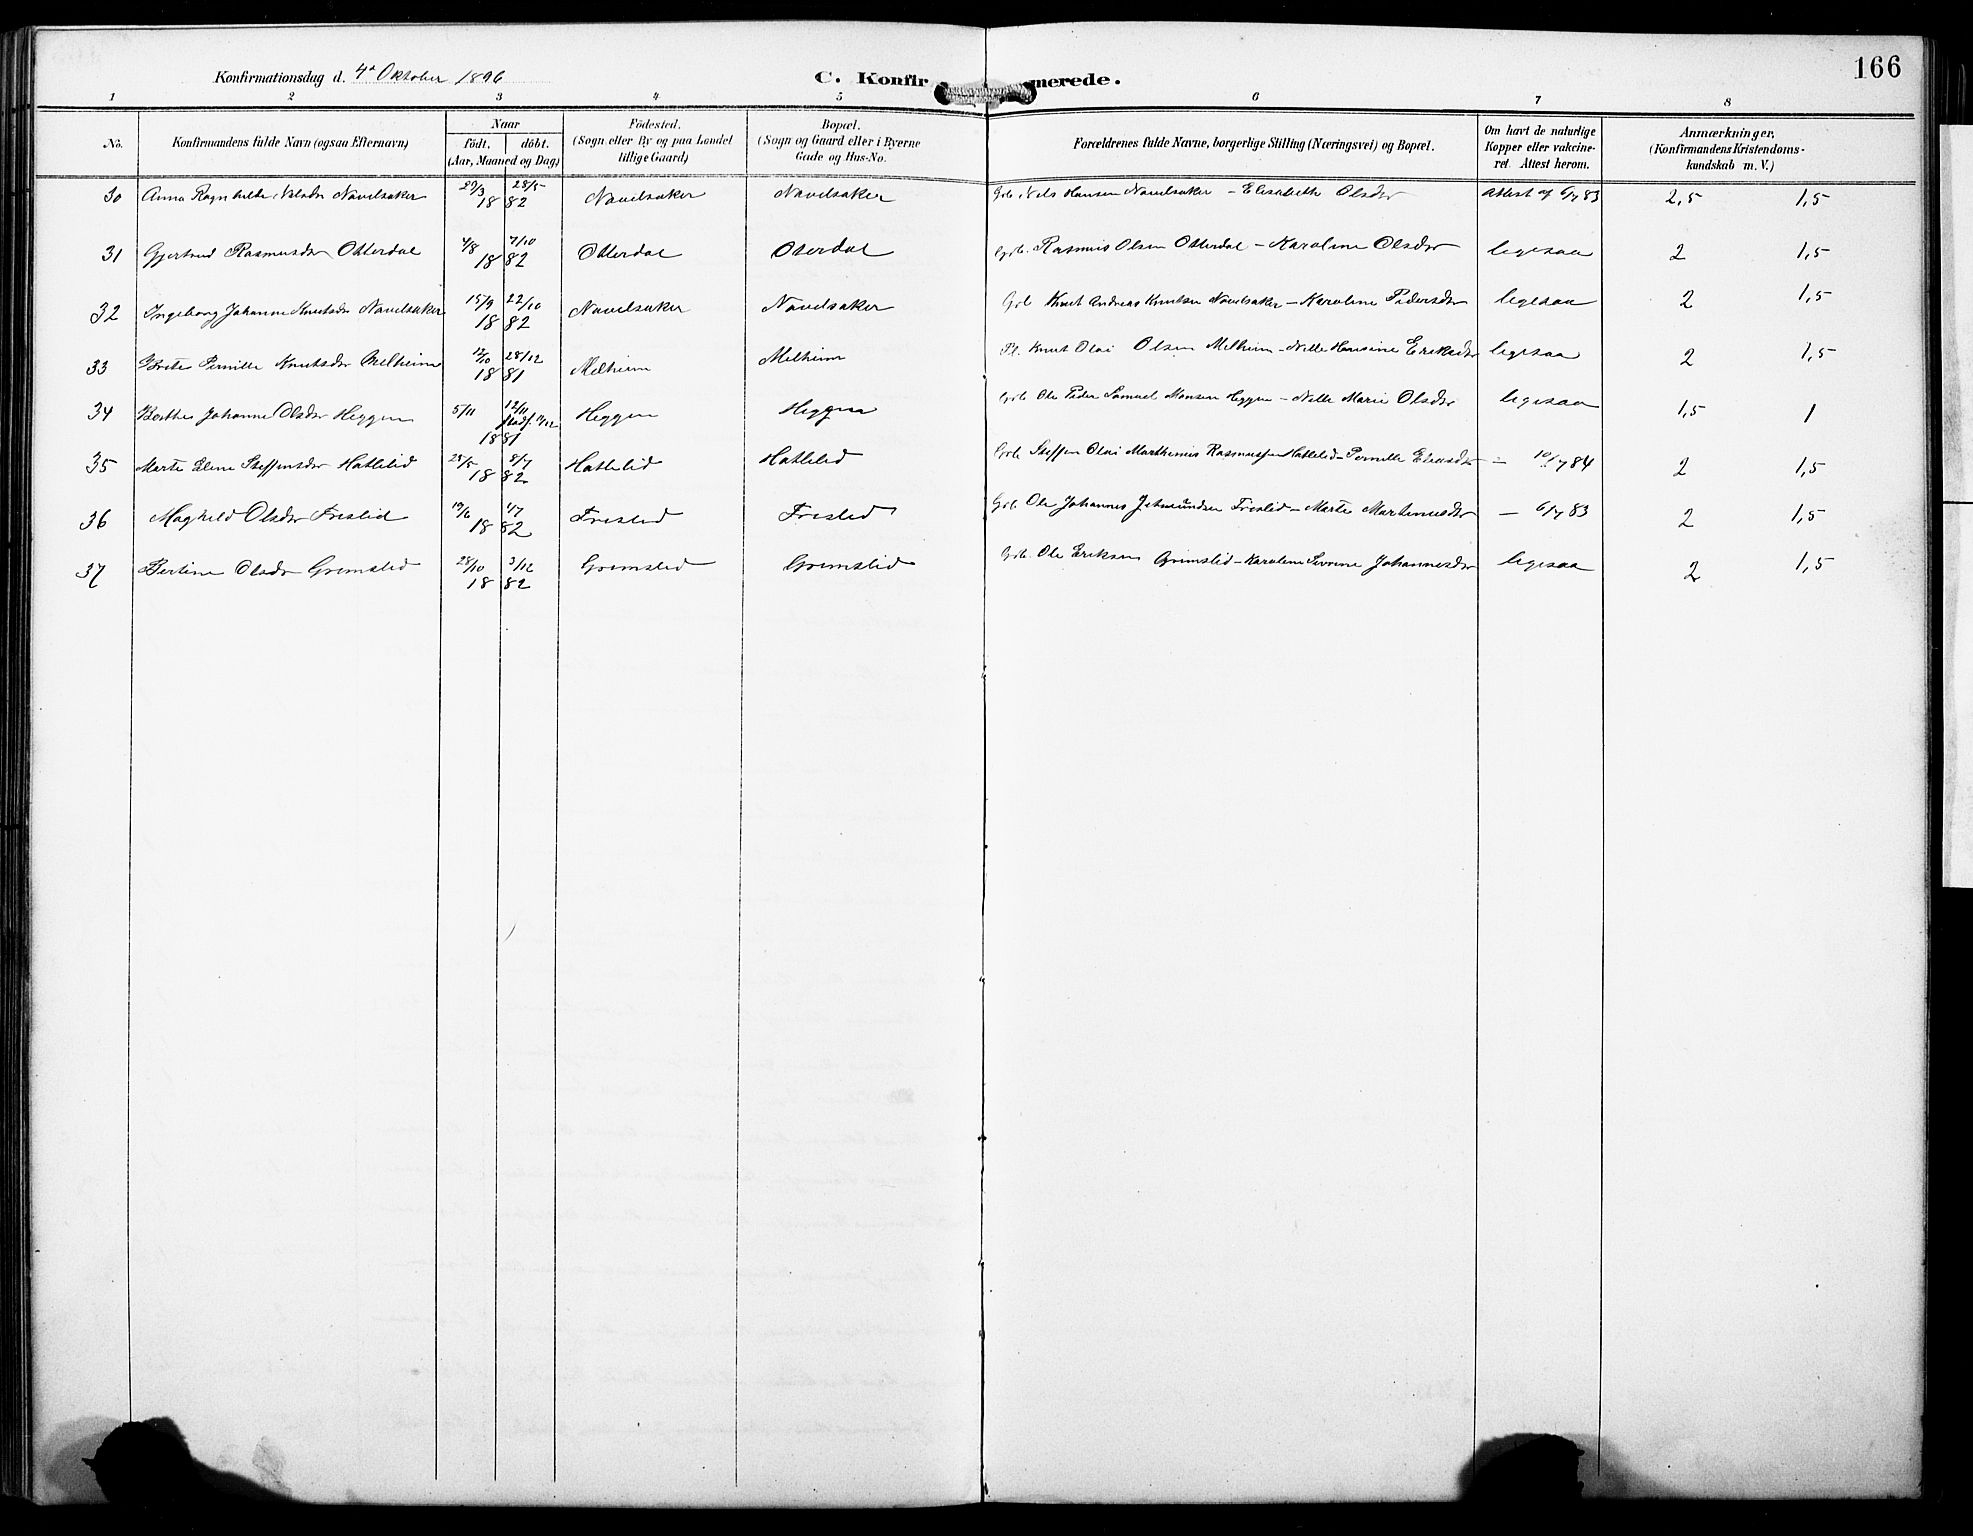 166
Konfirmationsdag d. 4de Oktober 1896 C. Konfirmerede.
1 2 3 4 5 6 7 8
No. Konfirmandens fulde Navn (ogsaa Efternavn) Naar födt, döbt. (Aar, Maaned og Dag) Födested. (Sogn eller By og paa Landet tillige Gaard) Bopæl. (Sogn og Gaard eller i Byerne Gade og Hus-No. Forældrenes fulde Navne, borgerlige Stilling (Næringsvei) og Bopæl. Om havt de naturlige Kopper eller vakcineret. Attest herom. Anmærkninger, (Konfirmandens Kristendomskundskab m. V.)
30 Anna Ragnhilda Nilsdr Navelsaker 29/3 28/5 1882 Navelsaker Navelsaker Grb. Nils Hansen Navelsaker – Elisabeth Olsdr Attest af 6/7 83 2,5 1,5
31 Gjertrud Rasmusdr Otterdal 4/8 7/10 1882 Otterdal Oterdal Grb. Rasmus Olsen Otterdal – Karoline Olsdr ligesaa 2 1,5
32 Ingeborg Johanne Knutsdr Navelsaker 15/9 22/10 1882 Navelsaker Navelsaker Grb Knut Andreas Knutsen Navelsaker – Karoline Pedersdr ligesaa 2 1,5
33 Brite Pernille Knutsdr Melheim 12/10 28/12 1881 Melheim Melheim Pl. Knut Olai Olsen Melheim – Nille Hansine Eriksdr ligesaa 2 1,5
34 Berthe Johanne Olsdr Heggen 5/11 12/11 1881 Heggen Heggen Grb Ole Peder Samuel Monsen Heggen – Nille Marie Olsdr ligesaa 1,5 1
35 Marte Elene Steffensdr Hatlelid 25/5 8/7 1882 Hatlelid Hatlelid Grb Steffen Olai Marthinus Rasmussen Hatlelid – Pernille Eliasdr – 10/7 84 2 1,5
36 Maghild Olsdr Frislid 19/6 1/7 1882 Frislid Frislid Grb. Ole Johannes Jetmundsen Frislid – Marte Martinusdr – 6/7 83 2 1,5
37 Bertine Olsdr Grimslid 28/10 3/12 1882 Grimslid Grimslid Grb. Ole Eriksen Grimslid – Karolene Sivrine Johannesdr ligesaa 2 1,5